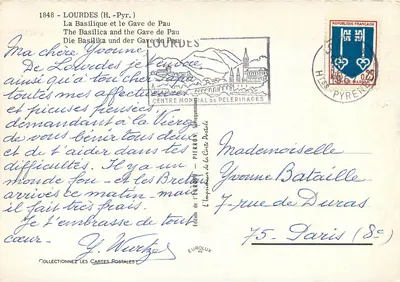 1848 - LOURDES (H. - Pyr.)
La Basilique et le Gave de Pau
The Basilica and the Gave de Pau
Die Basilika und der Gave de Pau
LOURDES
CENTRE MONDIAL DE PELERINAGES
REPUBLIQUE FRANÇAISE
0,25
Htes-PYRENEES
Ma chère Yvonne,
De Lourdes je t'envoie,
ainsi qu'à ton cher Papa,
toutes mes affectueuses
et pieuses pensées,
demandant à la Vierge
de vous bénir tous deux
et de t'aider dans tes
difficultés. Il y a un
monde fou - et les
arrivés ce matin - mais
il fait très frais.
Je t'embrasse de tout
cœur -
Y. Wurtzel
Mademoiselle
Yvonne Bataille
7 - rue de Duras
75 - Paris (8e)
EUROLUX
COLLECTIONNEZ LES CARTES POSTALES